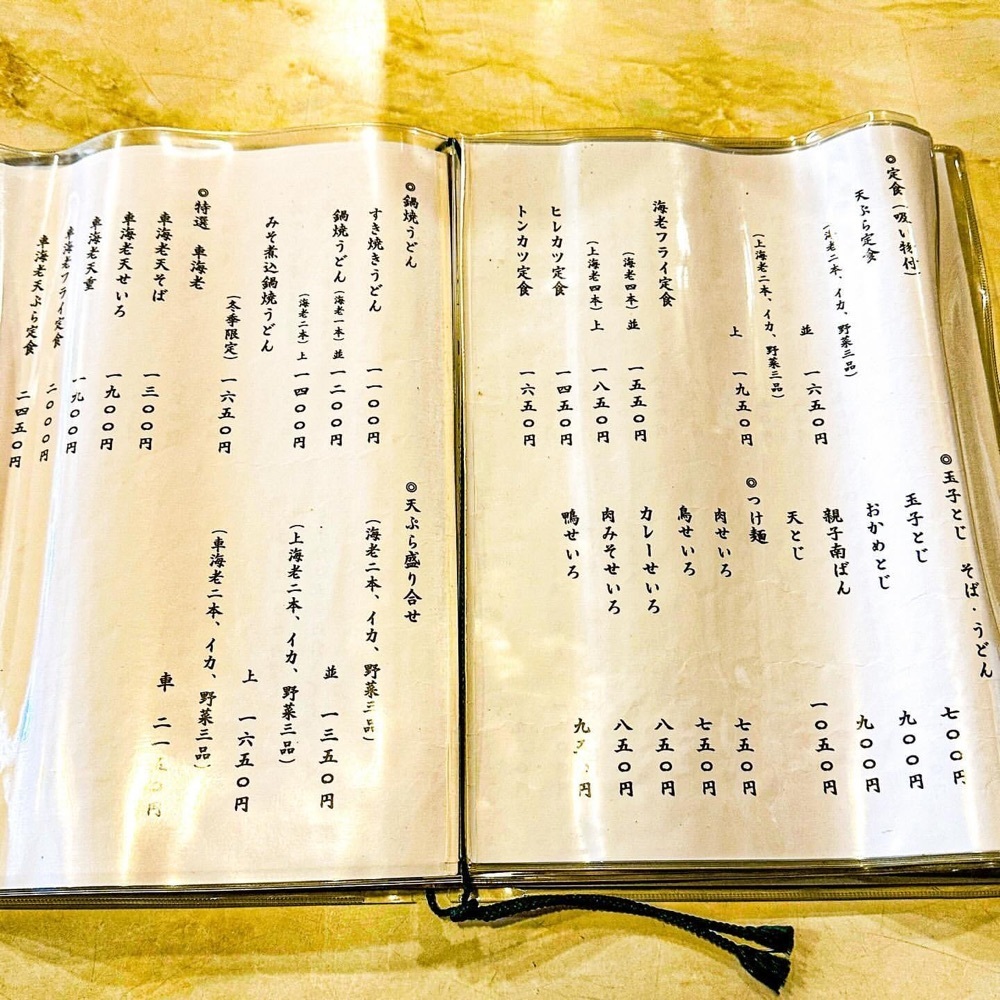 ◎定食（吸い物付）
天ぷら定食
（海老二本、イカ、野菜三品）
並 一六五〇円
（上海老二本、イカ、野菜三品）
上 一九五〇円
海老フライ定食
（海老四本）並 一五五〇円
（上海老四本）上 一八五〇円
ヒレカツ定食 一四五〇円
トンカツ定食 一六五〇円
◎玉子とじ そば・うどん
玉子とじ 七〇〇円
おかめとじ 九〇〇円
親子南ばん 九〇〇円
天とじ 一〇五〇円
◎つけ麺
肉せいろ 七五〇円
鳥せいろ 七五〇円
カレーせいろ 八五〇円
肉みそせいろ 八五〇円
鴨せいろ
◎鍋焼うどん
すき焼きうどん 一一〇〇円
鍋焼うどん（海老一本）並 一二〇〇円
（海老二本）上 一四〇〇円
みそ煮込鍋焼うどん
（冬季限定） 一六五〇円
◎特選 車海老
車海老天そば 一三〇〇円
車海老天せいろ 一九〇〇円
車海老天重 一九〇〇円
車海老フライ定食 二〇〇〇円
車海老天ぷら定食 二四五〇円
◎天ぷら盛り合せ
（海老二本、イカ、野菜三品）
並 一三五〇円
（上海老二本、イカ、野菜三品）
上 一六五〇円
（車海老二本、イカ、野菜三品）
車